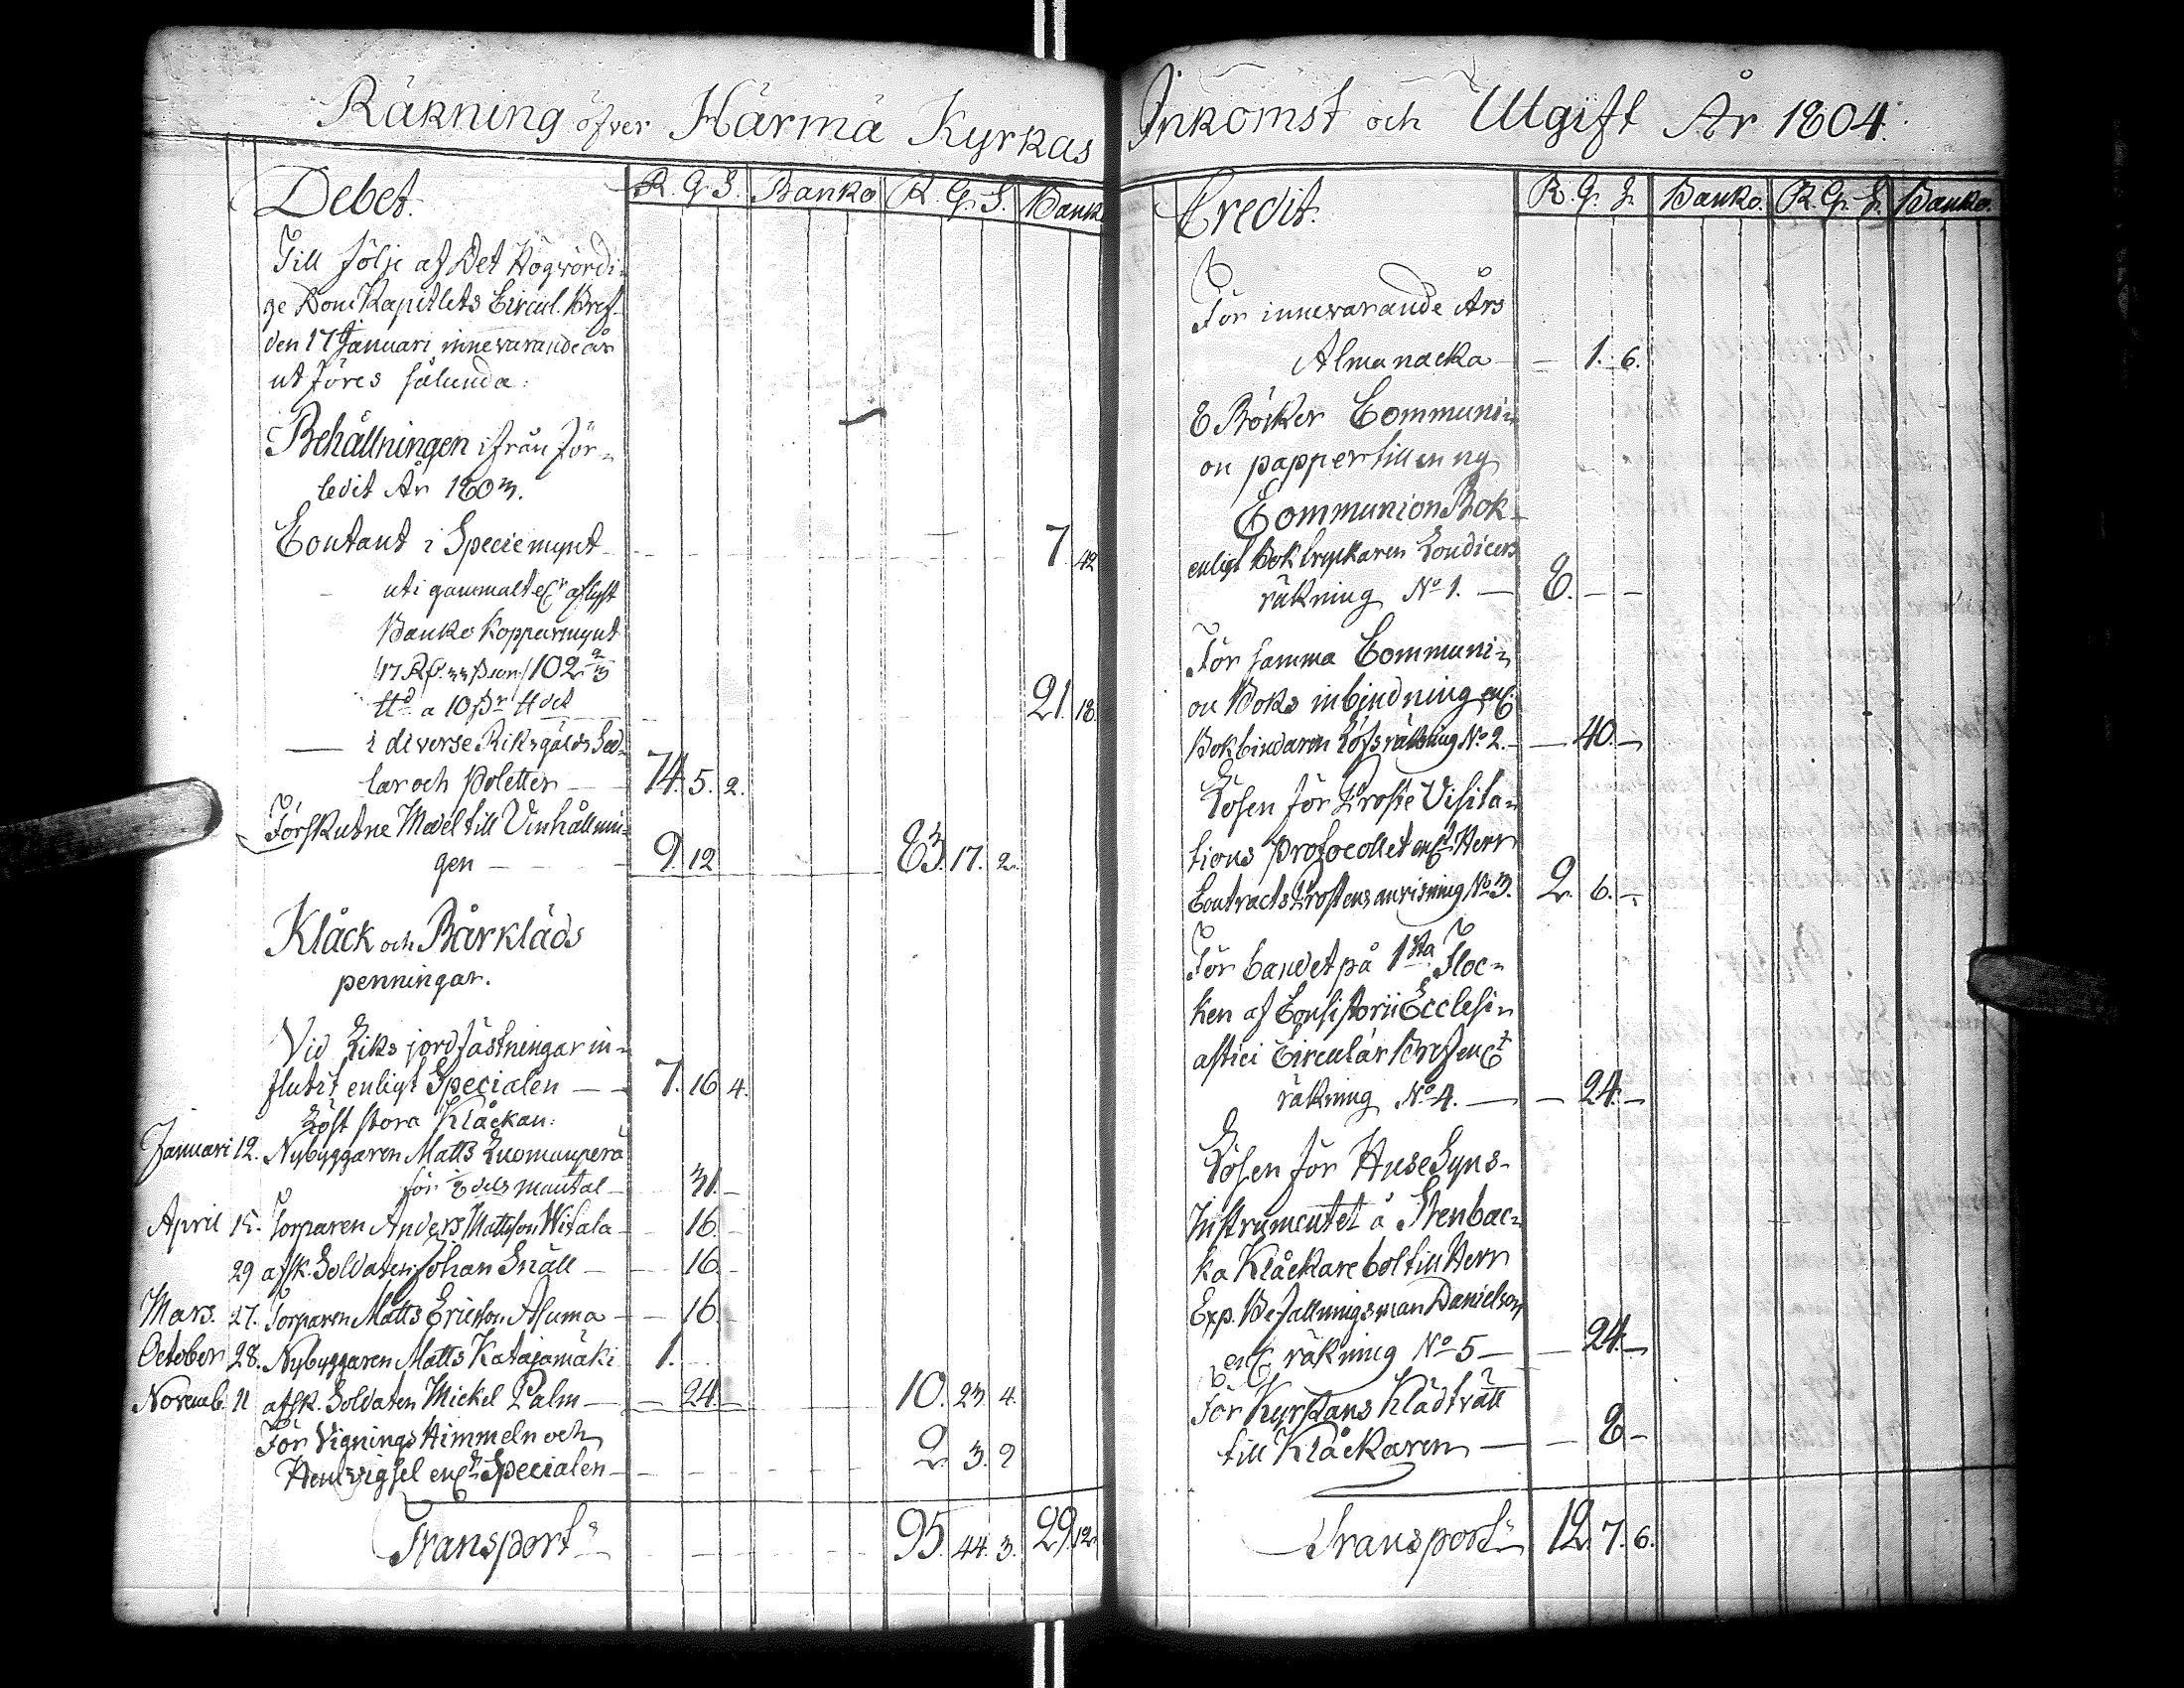 Räkning öfver Härmä Kyrkas
Debet.
R. G. S. Banko R. G. S. Bank
Till följe af Det Högvördi-
ge Dom Kapitlets Circul. Bref
den 17 Januari innevarande år
utföres sålunda:
Behållningen ifrån för-
ledit År 1803.
Contant i Speciemynt 7. 42
uti gammalt aflyst
Banko Kopparmynt
102 2/3
a 10 21. 18.
i diverse Riksgälds Sed-
lar och Poletter 74. 5. 2.
Förskutne Medel till Vinhållnin-
gen 9. 12 83. 17. 2.
Klåck och Bårkläds
penningar.
Vid Liks jordfästningar in-
flutit enligt Specialen 7. 16. 4.
Löst stora Klåckan:
Januari 12. Nybyggaren Matts Luomanperä
för dels mantal 31.
April 15. Torparen Anders Mattsson Witala 16.
29 afsk. Soldaten Johan Snäll 16.
Mars. 27. Torparen Matts Ericsson Aluma 16.
October 28. Nybyggaren Matts Katajamäki 1.
Novemb. 11 afsk. Soldaten Mickel Palm 24. 10. 23. 4.
För Vignings Himmeln och
Hemvigsel enl. Specialen 2. 3. 9
Transport 95. 44. 3. 29. 12
Inkomst och Utgift År 1804.
Credit.
R. G. S. Banko. R. G. S. Banko.
För innevarande Års
Almanacka 1. 6.
8 Böcker Communi-
on papper till en ny
Communion Bok
enligt Boktryckaren Londicers
räkning No 1. 8.
För samma Communi-
on Boks inbindning enl.
Bokbindaren Löfs räkning No 2. 40.
Lösen för Proste Visita-
tions Protocollet enl. Herr
Contracts Prostens anvisning No 3. 2. 6.
För bandet på 1sta Floc-
ken af Consistorii Ecclesi-
astici Circulär Bref enl.
räkning No 4. 24.
Lösen för Huse Syns-
Instrumentet å Stenbac-
ka Klåckare bol till Herr
Exp. Befallningsman Danielson
enl. räkning No 5 24.
För Kyrkans Klädtvätt
till Klåckaren 8
Transport 12. 7. 6.